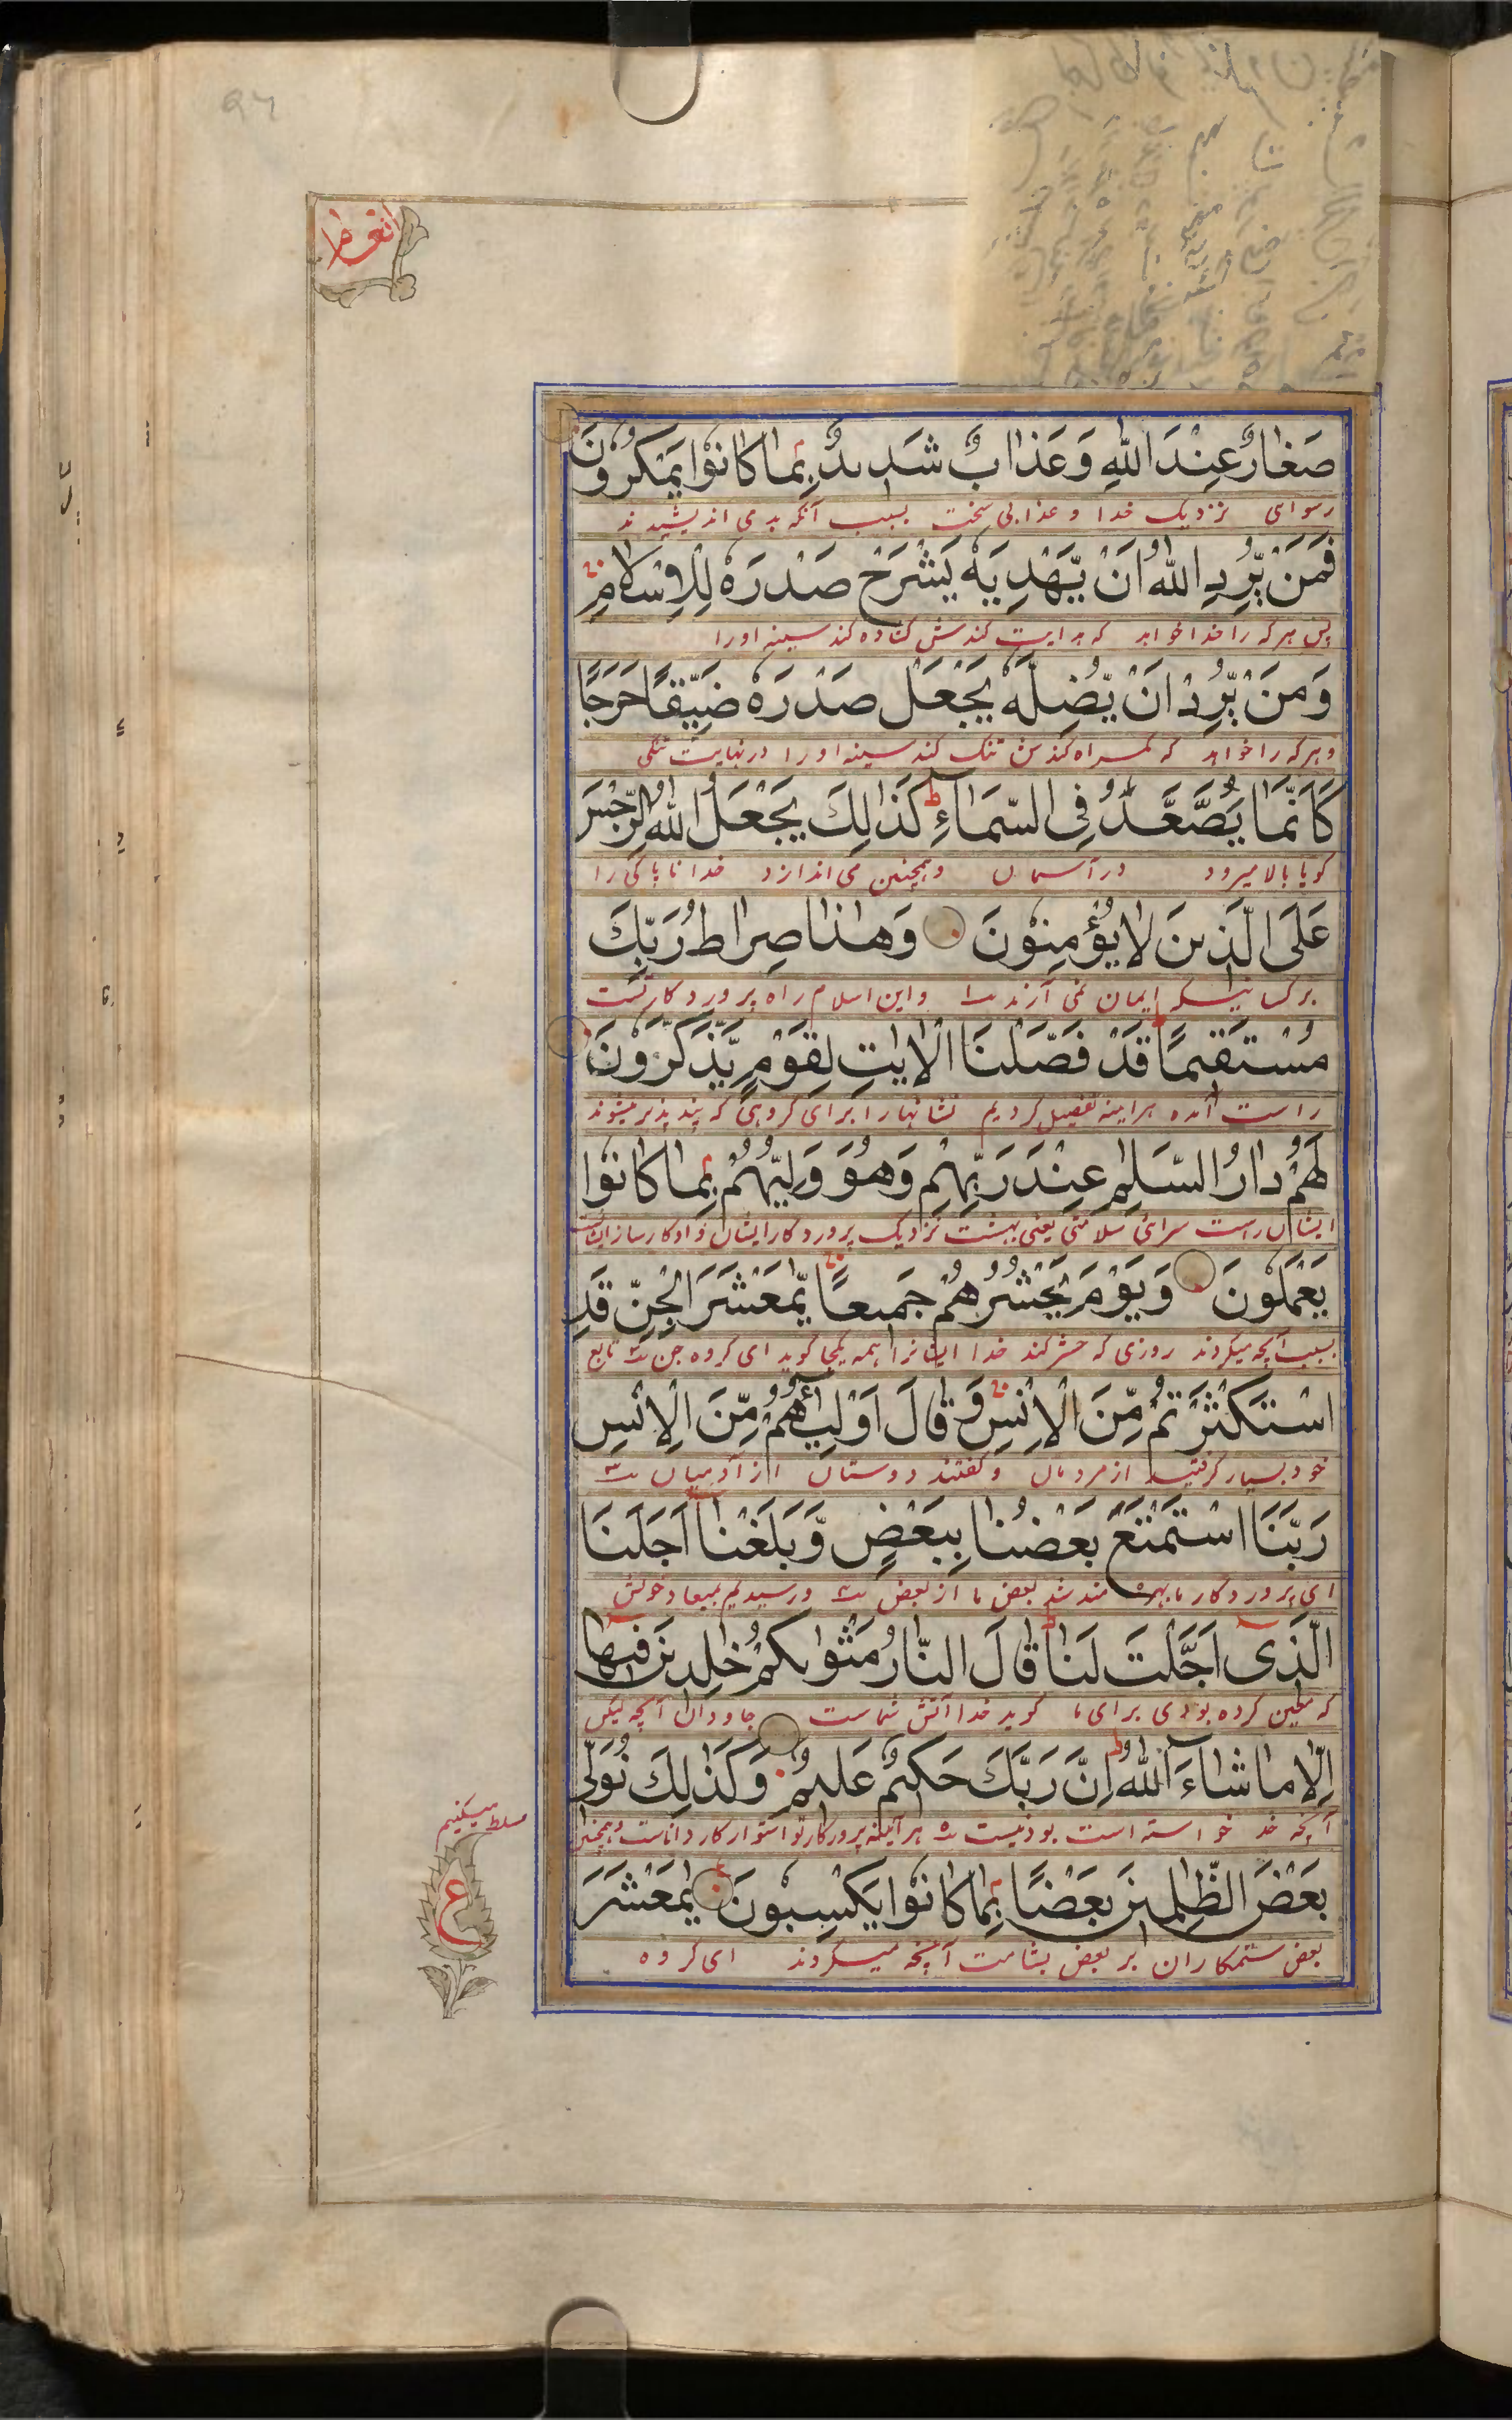 انعام
صَغَارٌ عِنْدَ اللّٰهِ وَعَذَابٌ شَدِيدٌ بِمَا كَانُوْا يَمْكُرُوْنَ
رسوای نزدیک خدا و عذابی سخت بسبب آنکه بد می اندیشیدند
فَمَنْ يُّرِدِ اللّٰهُ اَنْ يَّهْدِيَهٗ يَشْرَحْ صَدْرَهٗ لِلْاِسْلَامِ
پس هر که را خدا خواهد که هدایت کندش کشاده کند سینه او را
وَمَنْ يُّرِدْ اَنْ يُّضِلَّهٗ يَجْعَلْ صَدْرَهٗ ضَيِّقًا حَرَجًا
و هر که را خواهد که گمراه کندش تنگ کند سینه او را در نهایت تنگی
كَاَنَّمَا يَصَّعَّدُ فِى السَّمَآءِ ط كَذٰلِكَ يَجْعَلُ اللّٰهُ الرِّجْسَ
گویا بالا میرود در آسمان و همچنین می اندازد خدا ناپاکی را
عَلَى الَّذِينَ لَا يُؤْمِنُوْنَ وَهٰذَا صِرَاطُ رَبِّكَ
بر کسانیکه ایمان نمی آرند و این اسلام راه پروردگار تست
مُسْتَقِيمًا ط قَدْ فَصَّلْنَا الْاٰيٰتِ لِقَوْمٍ يَّذَّكَّرُوْنَ
راست آمده هراینه تفصیل کردیم نشانها را برای گروهی که پند پذیر میشوند
لَهُمْ دَارُ السَّلٰمِ عِنْدَ رَبِّهِمْ وَهُوَ وَلِيُّهُمْ بِمَا كَانُوْا
ایشان راست سرای سلامتی یعنی بهشت نزدیک پروردگار ایشان و او کارساز ایشانست
يَعْمَلُوْنَ وَيَوْمَ يَحْشُرُهُمْ جَمِيعًا يّٰمَعْشَرَ الْجِنِّ قَدِ
بسبب آنچه میکردند روزی که حشر کند خدا ایشانرا همه یکجا گوید ای گروه جن تابع
اسْتَكْثَرْتُمْ مِّنَ الْاِنْسِ وَقَالَ اَوْلِيٰٓئُهُمْ مِّنَ الْاِنْسِ
خود بسیار گرفتید از مردمان و گفتند دوستان از آدمیان
رَبَّنَا اسْتَمْتَعَ بَعْضُنَا بِبَعْضٍ وَّبَلَغْنَآ اَجَلَنَا
ای پروردگار ما بهره مند شد بعض ما از بعض و رسیدیم بمیعاد خویش
الَّذِىٓ اَجَّلْتَ لَنَا ط قَالَ النَّارُ مَثْوٰىكُمْ خٰلِدِينَ فِيهَآ
که معین کرده بودی برای ما گوید خدا آتش شماست جاودان آنچه لیکن
اِلَّا مَا شَآءَ اللّٰهُ ط اِنَّ رَبَّكَ حَكِيمٌ عَلِيمٌ وَكَذٰلِكَ نُوَلِّى
آنچه خدا خواسته است بودنیست هرآینه پروردگار تو استوار کار داناست و همچنین
مسلط میکنیم
بَعْضَ الظّٰلِمِينَ بَعْضًا بِمَا كَانُوْا يَكْسِبُوْنَ يٰمَعْشَرَ
بعض ستمکاران بر بعض بشامت آنچه میکردند ای گروه
ع